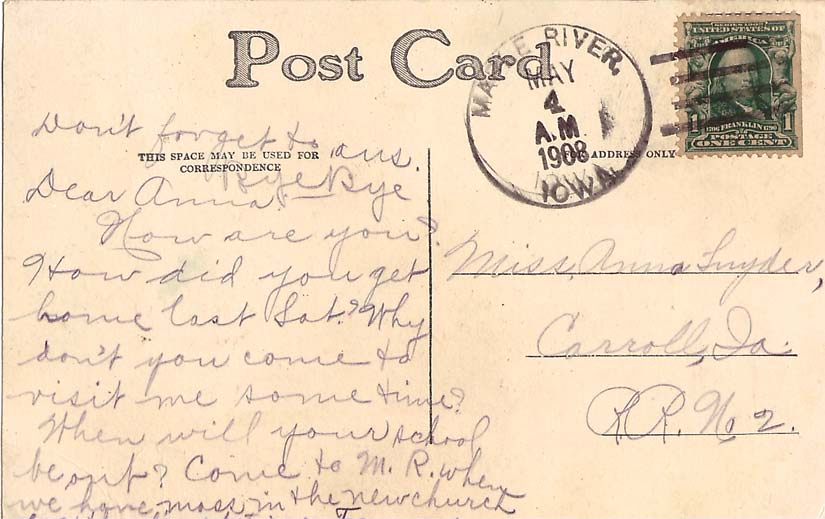 Post Card
MAPLE RIVER,
MAY
4
A.M.
1908
IOWA
SERIES 1902
UNITED STATES OF
AMERICA
1 1
1706 FRANKLIN 1790
POSTAGE
ONE CENT
THIS SPACE MAY BE USED FOR
CORRESPONDENCE
ADDRESS ONLY
Don't forget to ans.
Bye Bye
Dear Anna.
How are you?
How did you get
home last Sat.? Why
don't you come to
visit me some time?
When will your school
be out? Come to M. R. when
we have mass in the new church
Miss Anna Snyder,
Carroll, Ia.
R.R. No 2.